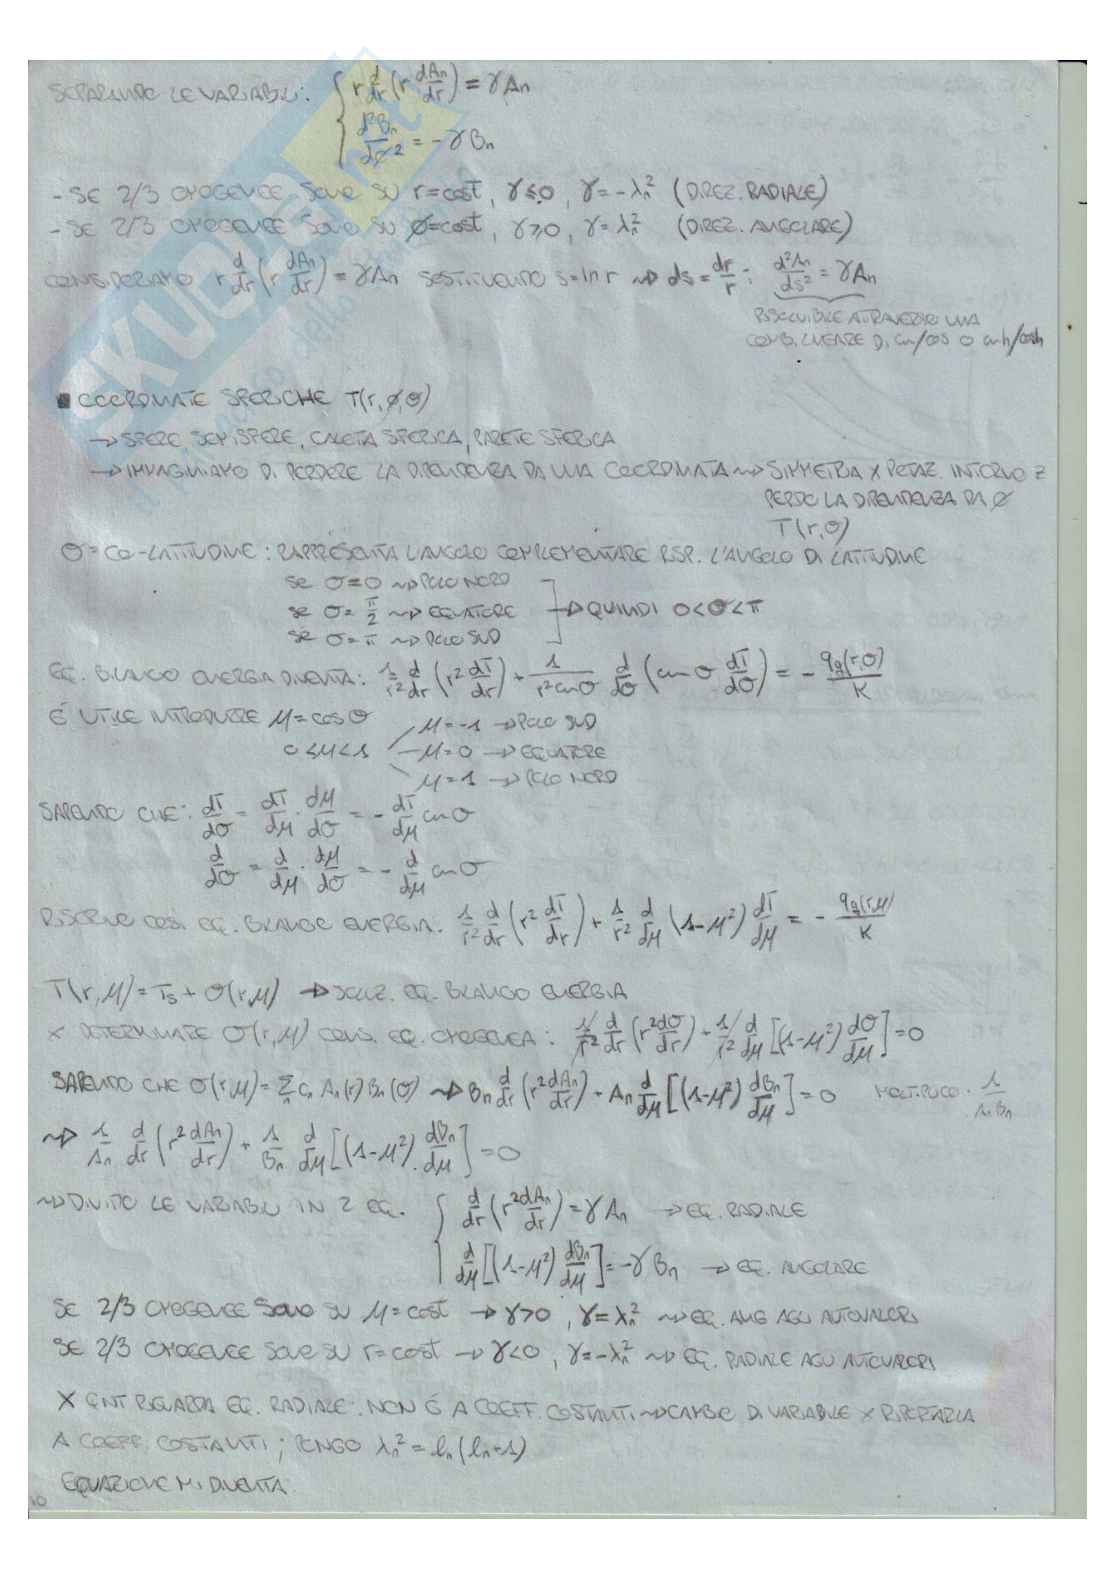 SEPARANDO LE VARIABILI: { r d/dr (r dAn/dr) = γAn
d²Bn/dø² = -γBn
- SE 2/3 OMOGENEE SONO SU r=cost, γ≤0, γ=-λn² (DIREZ. RADIALE)
- SE 2/3 OMOGENEE SONO SU ø=cost, γ≥0, γ=λn² (DIREZ. ANGOLARE)
CONSIDERIAMO r d/dr (r dAn/dr) = γAn SOSTITUENDO s=ln r ⇝ ds = dr/r : d²An/ds² = γAn
RISOLVIBILE ATTRAVERSO UNA
COMB. LINEARE DI sin/cos O sinh/cosh
■ COORDINATE SFERICHE T(r,ø,σ)
→ SFERE, SEMISFERE, CALOTTA SFERICA, PARETE SFERICA
→ IMMAGINIAMO DI PERDERE LA DIPENDENZA DA UNA COORDINATA ⇝ SIMMETRIA X ROTAZ. INTORNO Z
PERDO LA DIPENDENZA DA ø
T(r,σ)
σ = CO-LATITUDINE : RAPPRESENTA L'ANGOLO COMPLEMENTARE RISP. L'ANGOLO DI LATITUDINE
SE σ=0 ⇝ POLO NORD
SE σ=π/2 ⇝ EQUATORE → QUINDI 0<σ<π
SE σ=π ⇝ POLO SUD
EQ. BILANCIO ENERGIA DIVENTA: 1/r² d/dr (r² dT/dr) + 1/(r² sin σ) d/dσ (sin σ dT/dσ) = - qg(r,σ)/K
É UTILE INTRODURRE μ=cos σ
μ=-1 → POLO SUD
0≤μ<1 μ=0 → EQUATORE
μ=1 → POLO NORD
SAPENDO CHE: dT/dσ = dT/dμ · dμ/dσ = - dT/dμ sin σ
d/dσ = d/dμ · dμ/dσ = - d/dμ sin σ
RISCRIVO COSÌ EQ. BILANCIO ENERGIA: 1/r² d/dr (r² dT/dr) + 1/r² d/dμ (1-μ²) dT/dμ = - qg(r,μ)/K
T(r,μ) = Ts + σ(r,μ) → SOLUZ. EQ. BILANCIO ENERGIA
X DETERMINARE σ(r,μ) CONS. EQ. OMOGENEA : 1/r² d/dr (r² dσ/dr) + 1/r² d/dμ [(1-μ²) dσ/dμ] = 0
SAPENDO CHE σ(r,μ) = Σn cn An(r) Bn(σ) ⇝ Bn d/dr (r² dAn/dr) + An d/dμ [(1-μ²) dBn/dμ] = 0 MOLTIPLICO · 1/AnBn
⇝ 1/An d/dr (r² dAn/dr) + 1/Bn d/dμ [(1-μ²) · dBn/dμ] = 0
⇝ DIVIDO LE VARIABILI IN 2 EQ. { d/dr (r² dAn/dr) = γAn → EQ. RADIALE
d/dμ [(1-μ²) dBn/dμ] = -γBn → EQ. ANGOLARE
SE 2/3 OMOGENEE SONO SU μ=cost → γ>0, γ=λn² ⇝ EQ. ANG AGLI AUTOVALORI
SE 2/3 OMOGENEE SONO SU r=cost → γ<0, γ=-λn² ⇝ EQ. RADIALE AGLI AUTOVALORI
X QNT RIGUARDA EQ. RADIALE: NON É A COEFF. COSTANTI ⇝ CAMBIO DI VARIABILE X RIPORTARLA
A COEFF. COSTANTI ; PONGO λn² = ln(ln+1)
EQUAZIONE MI DIVENTA:
10